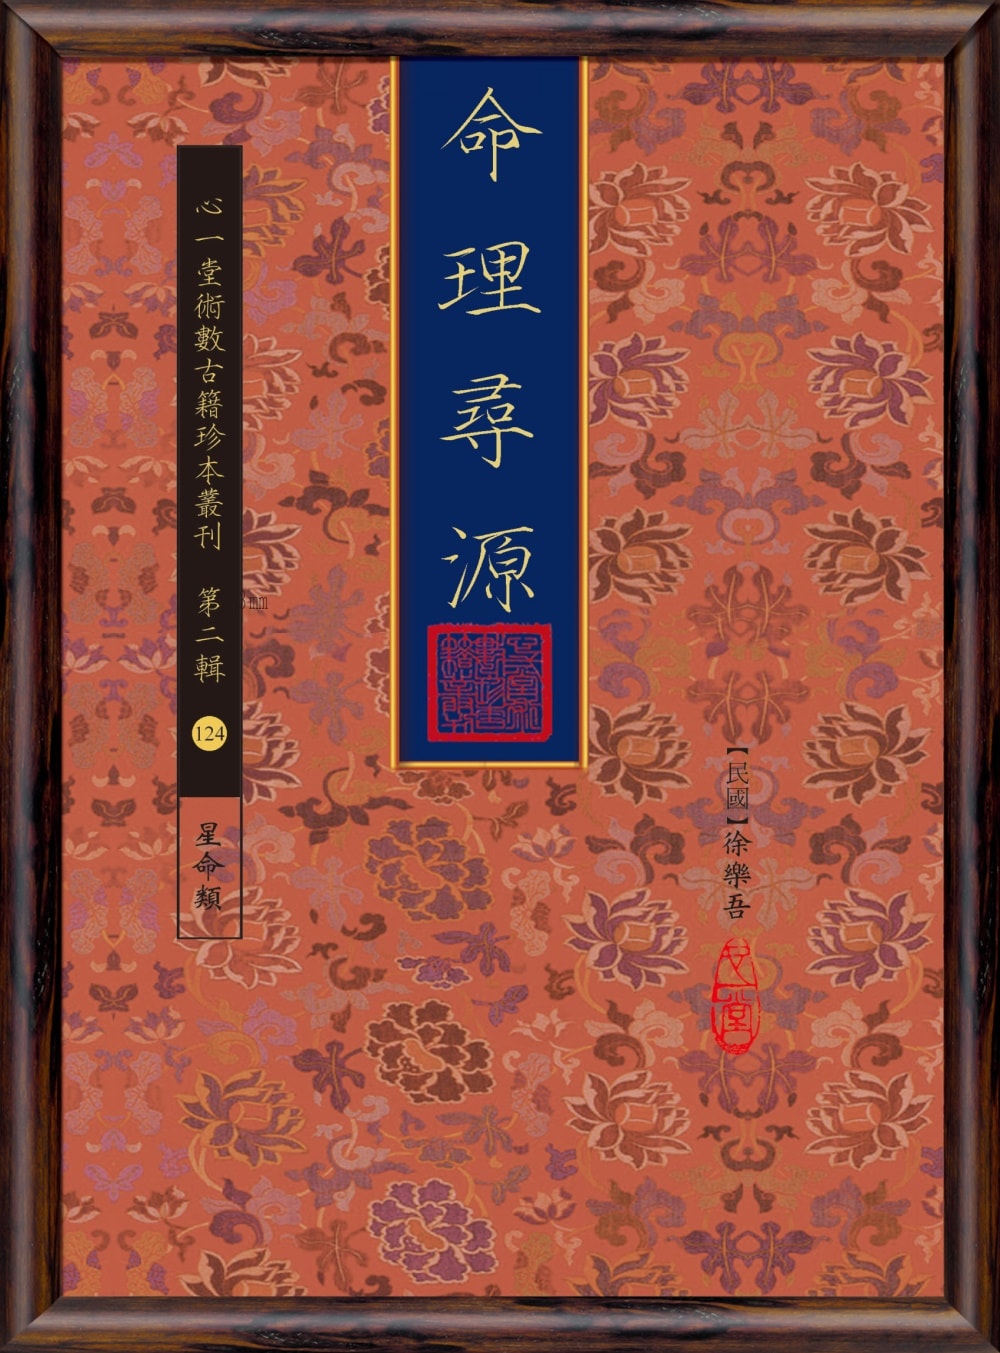 命理尋源
心一堂術數古籍珍本叢刊 第二輯
124
星命類
【民國】徐樂吾
mm